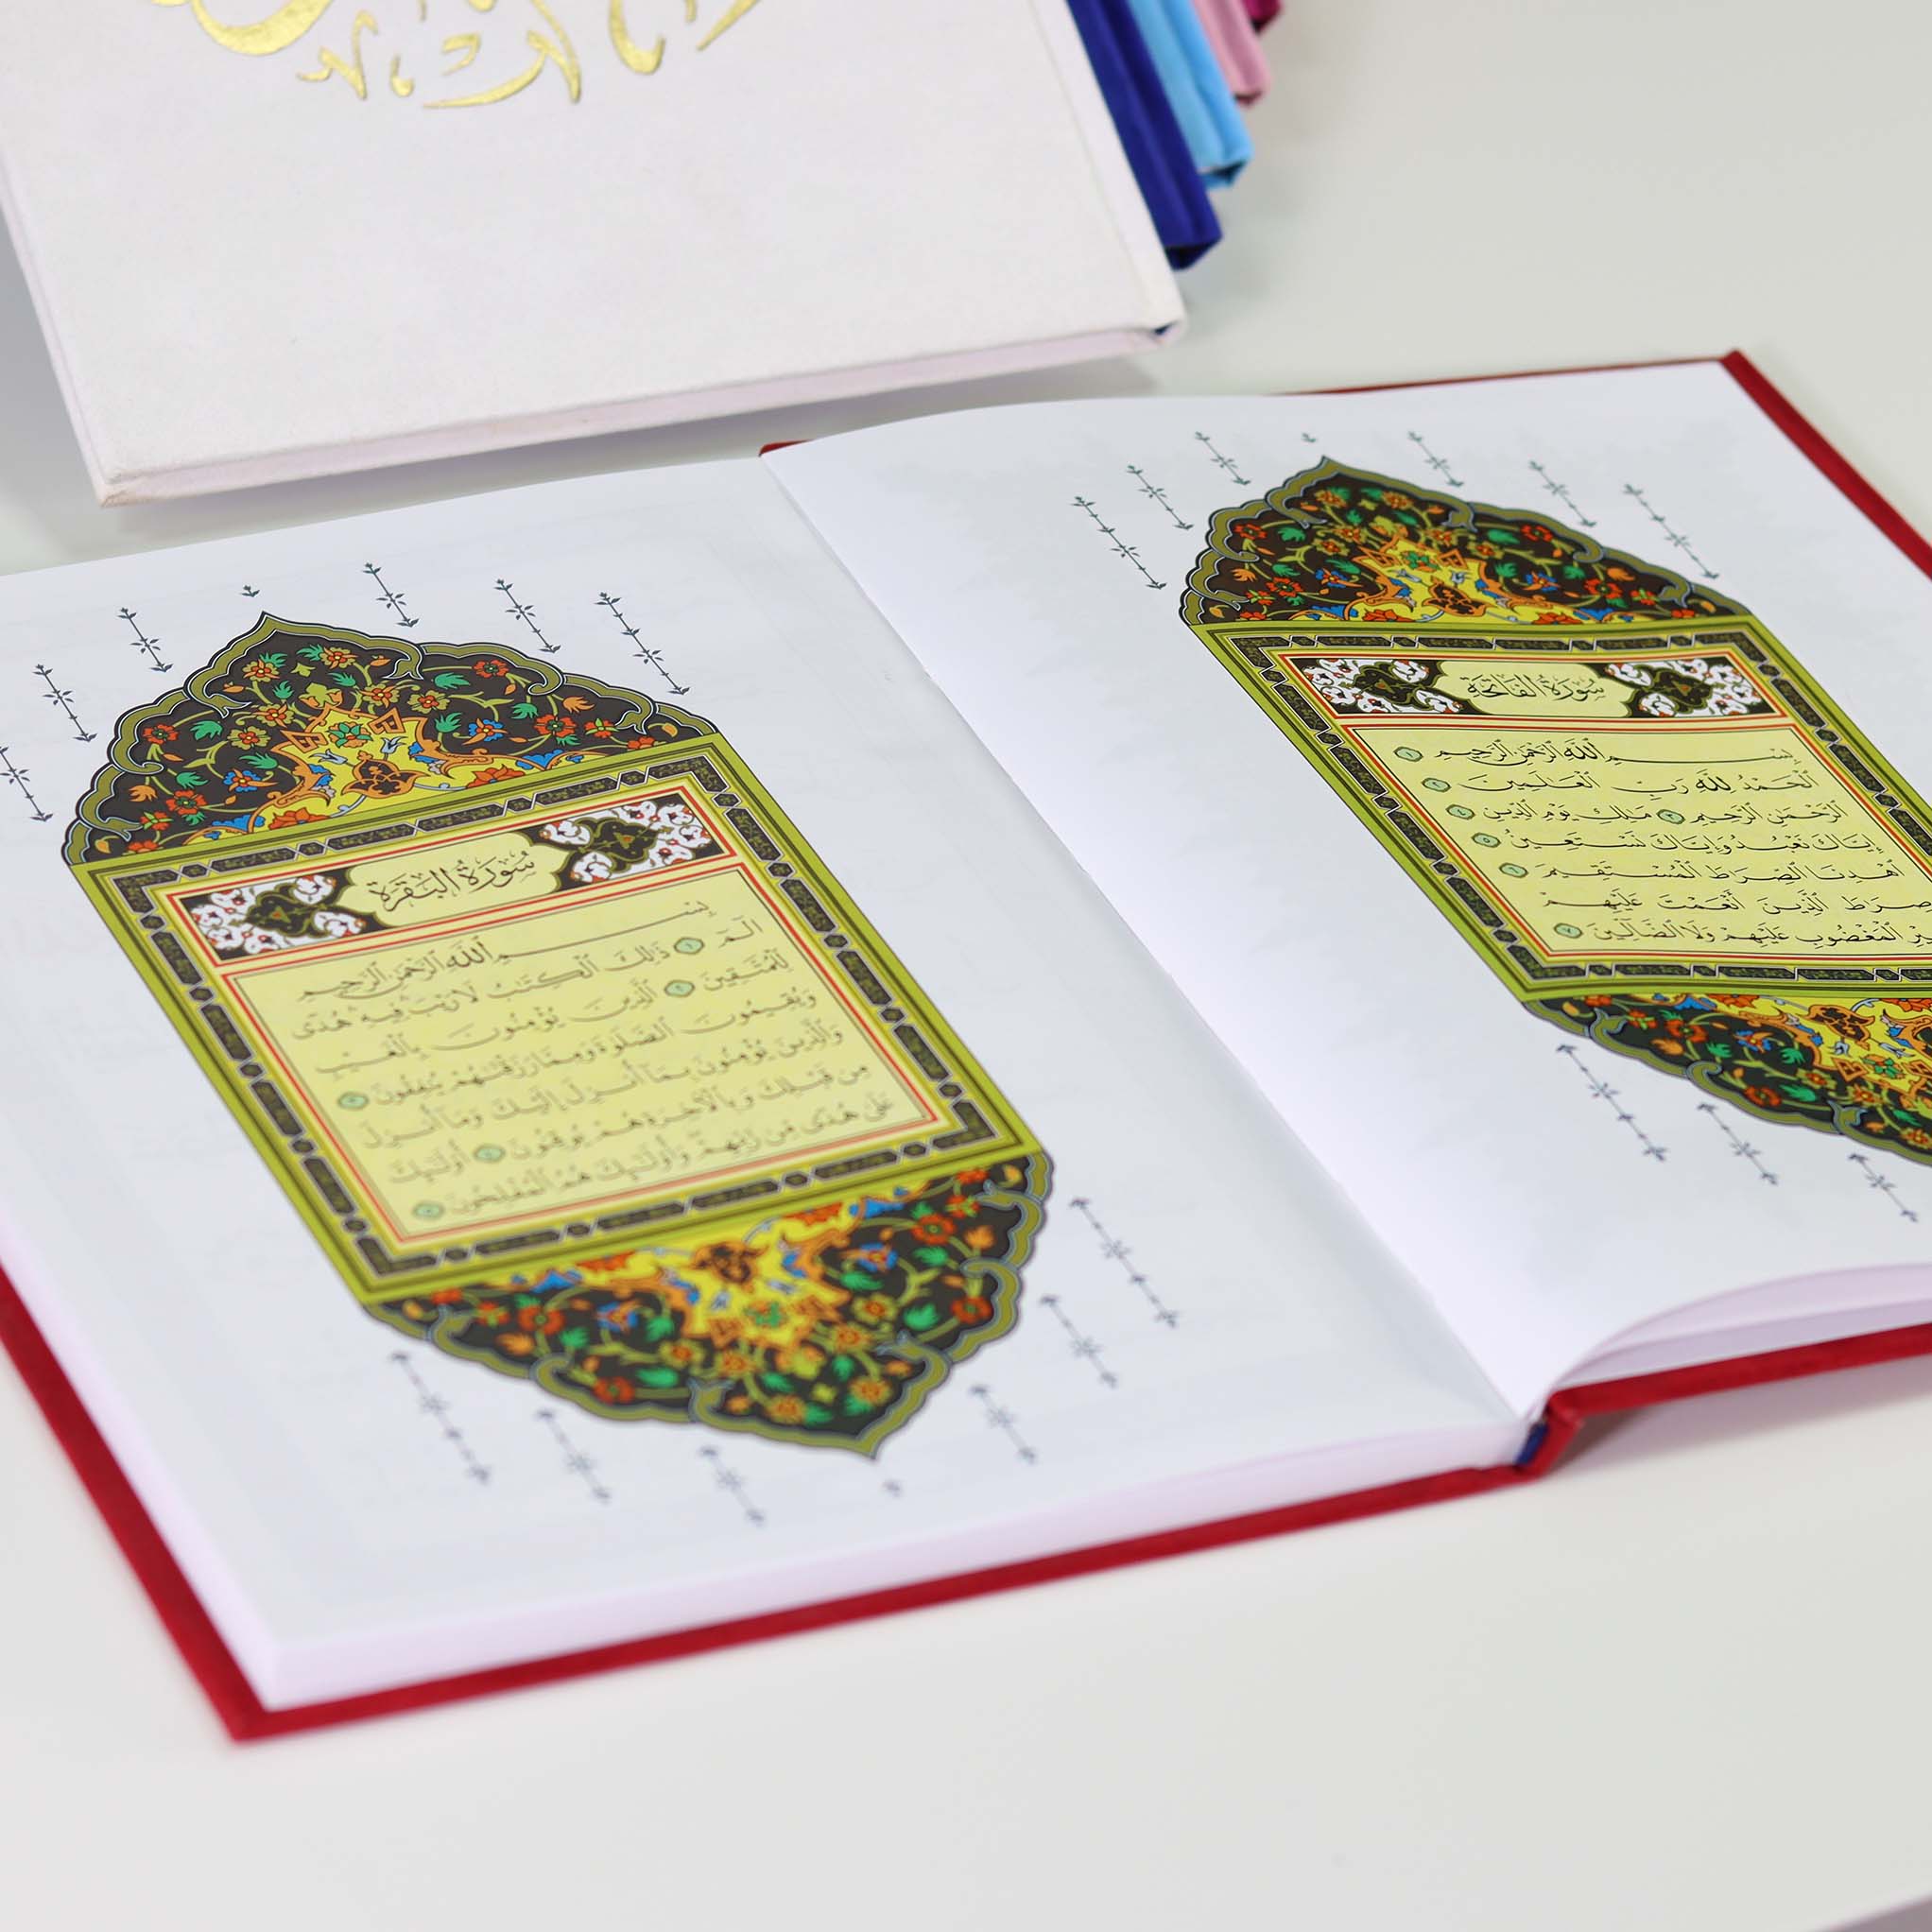 سُورَةُ الفَاتِحَةِ
بِسْمِ ٱللَّهِ ٱلرَّحْمَٰنِ ٱلرَّحِيمِ ١
ٱلْحَمْدُ لِلَّهِ رَبِّ ٱلْعَٰلَمِينَ ٢
ٱلرَّحْمَٰنِ ٱلرَّحِيمِ ٣ مَٰلِكِ يَوْمِ ٱلدِّينِ ٤
إِيَّاكَ نَعْبُدُ وَإِيَّاكَ نَسْتَعِينُ ٥
ٱهْدِنَا ٱلصِّرَٰطَ ٱلْمُسْتَقِيمَ ٦
صِرَٰطَ ٱلَّذِينَ أَنْعَمْتَ عَلَيْهِمْ
ٱلْمَغْضُوبِ عَلَيْهِمْ وَلَا ٱلضَّآلِّينَ ٧
سُورَةُ البَقَرَةِ
بِسْمِ ٱللَّهِ ٱلرَّحْمَٰنِ ٱلرَّحِيمِ
الٓمٓ ١ ذَٰلِكَ ٱلْكِتَٰبُ لَا رَيْبَ فِيهِ هُدًى
لِّلْمُتَّقِينَ ٢ ٱلَّذِينَ يُؤْمِنُونَ بِٱلْغَيْبِ
وَيُقِيمُونَ ٱلصَّلَوٰةَ وَمِمَّا رَزَقْنَٰهُمْ يُنفِقُونَ ٣
وَٱلَّذِينَ يُؤْمِنُونَ بِمَآ أُنزِلَ إِلَيْكَ وَمَآ أُنزِلَ
مِن قَبْلِكَ وَبِٱلْءَاخِرَةِ هُمْ يُوقِنُونَ ٤ أُو۟لَٰٓئِكَ
عَلَىٰ هُدًى مِّن رَّبِّهِمْ وَأُو۟لَٰٓئِكَ هُمُ ٱلْمُفْلِحُونَ ٥